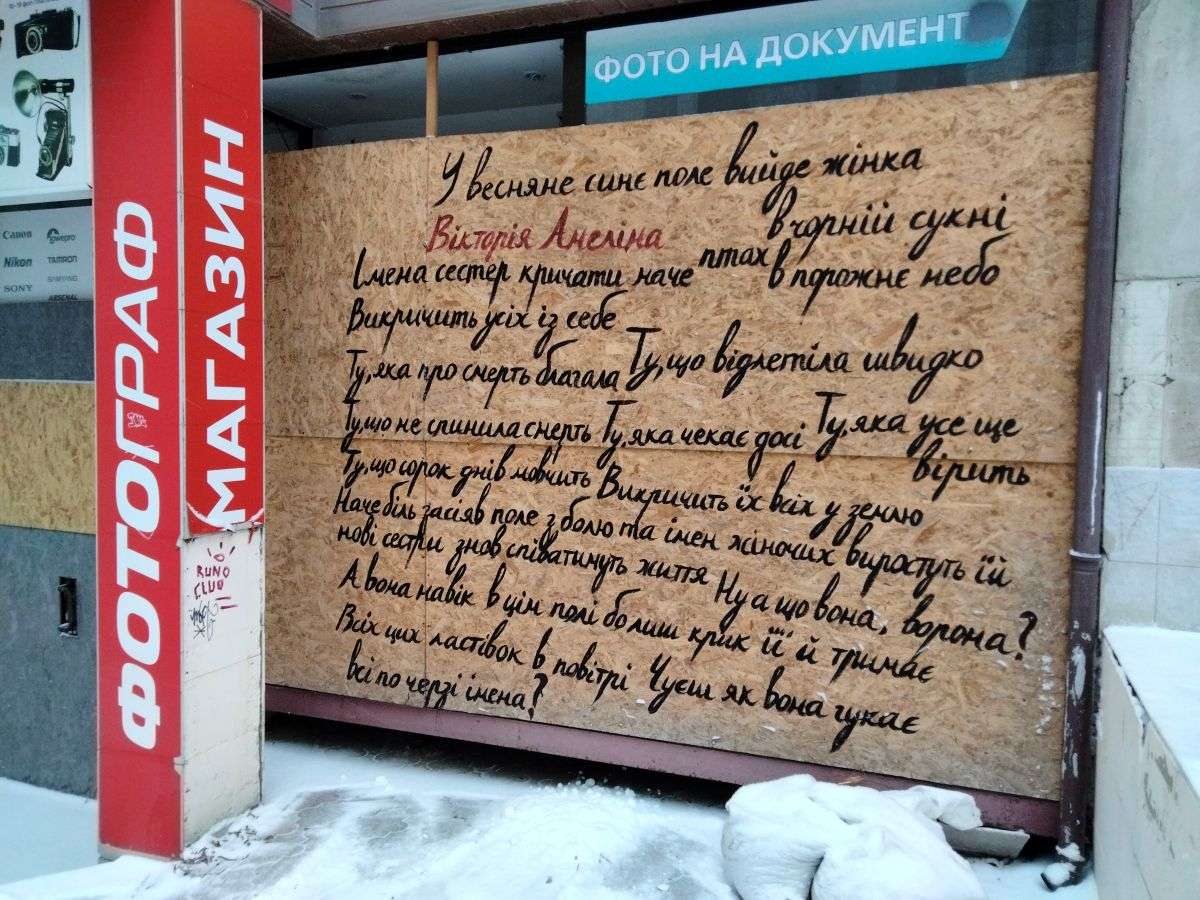 ФОТО НА ДОКУМЕНТ
ФОТОГРАФ
МАГАЗИН
Canon
lowepro
Nikon
TAMRON
SONY
SAMYANG
ARSENAL
RUNO
CLUB
У весняне синє поле вийде жінка
Вікторія Амеліна
в чорній сукні
Імена сестер кричати наче птах в порожнє небо
Викричить усіх із себе
Ту, яка про смерть благала Ту, що відлетіла швидко
Ту, що не спинила смерть Ту, яка чекає досі Ту, яка усе ще
вірить
Ту, що сорок днів мовчить Викричить їх всіх у землю
Наче біль засіяв поле з болю та імен жіночих виростуть їй
нові сестри знов співатимуть життя Ну а що вона, ворона?
А вона навік в цім полі бо лиш крик її й тримає
Всіх цих ластівок в повітрі Чуєш як вона гукає
всі по черзі імена?